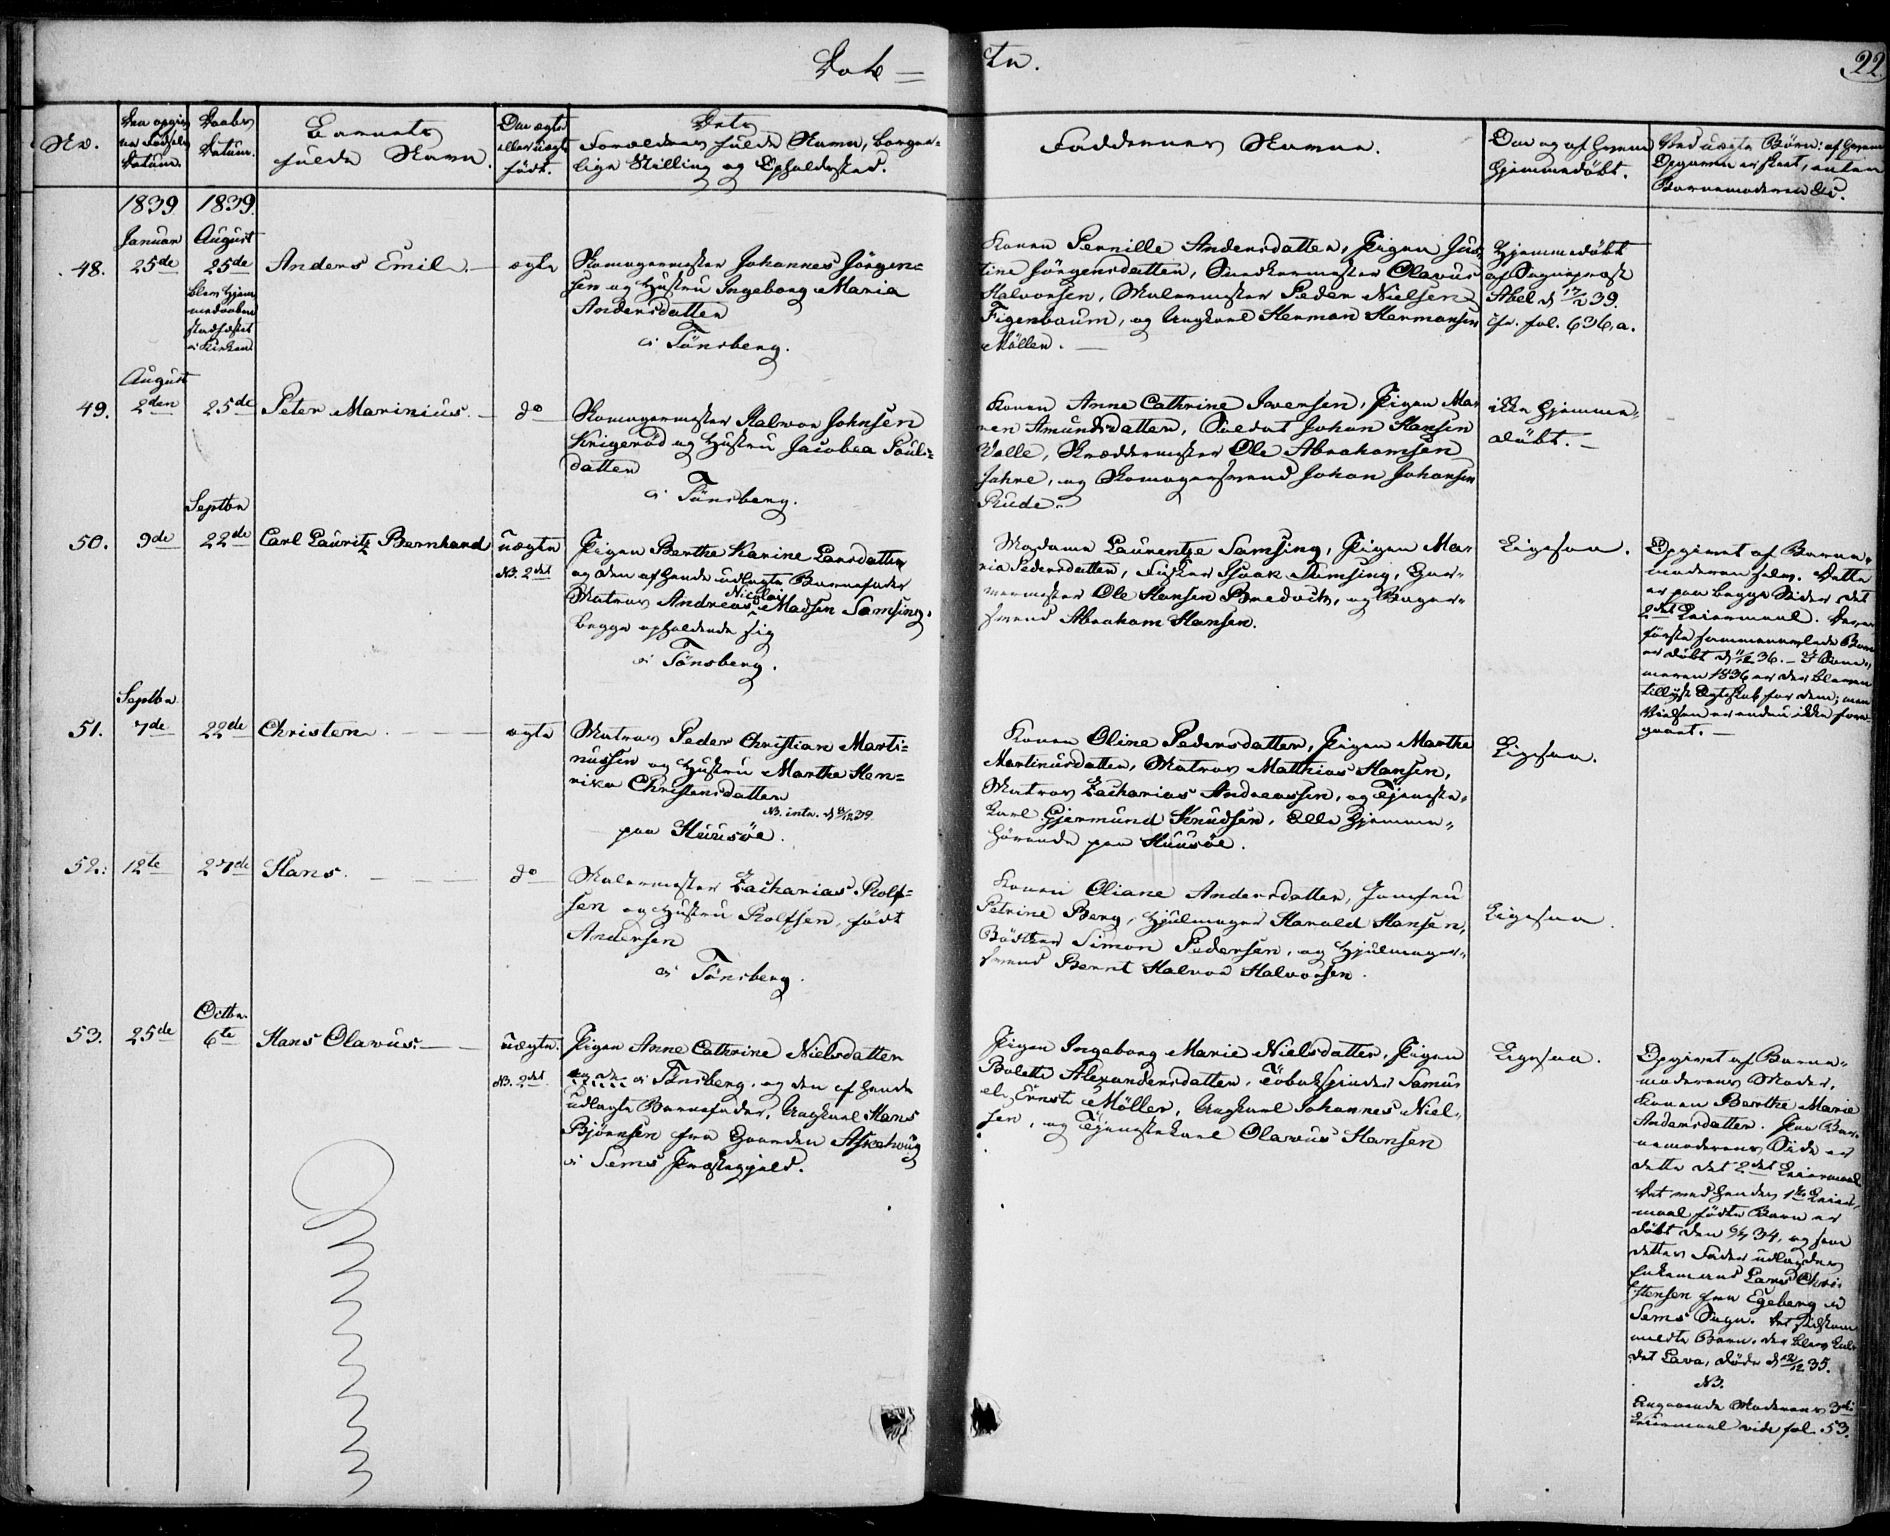 Døbte.
22.
No.
Den opgiv-
ne Fødsels
Datum.
Daabs
Datum.
Barnets
fulde Navn.
Om ægte
eller uægte
født.
Dets
Forældres fulde Navn, borger-
lige Stilling og Opholdssted.
Faddernes Navne.
Om og af hvem
hjemmedøbt.
Ved uægte Børn: af hvem
Opgaven er skeet, enten
Barnemoderen &c.
1839 1839.
Januar August
48. 25de 25de Anders Emil. — ægte
blev Hjem-
medaaben
stadfæstet
i Kirken
Skomagermester Johannes Jörgen-
sen og Hustru Ingeborg Maria
Andersdatter
i Tönsberg.
Konen Pernille Andersdatter, Pigen Jus-
tine Jörgensdatter, Snedkermester Olavus
Halvorsen, Malermester Peder Nielsen
Figenbaum, og Ungkarl Herman Hermansen
Möller. —
Hjemmedøbt
af Sognepræst
Abel d 17/2 39.
cfr. fol. 636, a.
August
49. 2den 25de Peter Marinius. — do
Skomagermester Halvor Johnsen
Krigeröd og Hustru Jacobea Pouls-
datter
i Tönsberg.
Konen Anne Cathrine Iversen, Pigen Ma-
ren Amundsdatter, Soldat Johan Hansen
Valle, Skræddermester Ole Abrahamsen
Jahre, og Skomagersvend Johan Johansen
Rude.
ikke hjemme-
døbt. —
Septbr
50. 9de 22de Carl Lauritz Bernhard uægte
NB. 2det
Pigen Berthe Karine Larsdatter
og den af hende udlagte Barnefader
Matros Andreas Nicolai Madsen Samsing,
begge opholdende sig
i Tönsberg.
Madame Laurentze Samsing, Pigen Ma-
ria Pedersdatter, Fisker Isaak Samsing, Gar-
vermester Ole Hansen Bredvik, og Bager-
svend Abraham Hansen.
Ligesaa.
Opgivet af Barne-
moderen selv. Dette
er paa begge Sider det
2det Leiermaal. Deres
første sammenavlede Barn
er døbt d 11/12 36. — I Som-
meren 1836 er der bleven
tillyst Ægteskab for dem; men
Vielsen er endnu ikke fore-
gaaet. —
Septbr
51. 7de 22de Christen. — — — ægte
Matros Peder Christian Marti-
nussen og Hustru Marthe Hen-
rika Christensdatter
paa Huusöe.
Konen Oline Pedersdatter, Pigen Marthe
Martinusdatter, Matros Matthias Hansen,
Matros Zacharias Andreassen, og Tjeneste-
karl Gjermund Knudsen, Alle Hjemme-
hørende paa Huusöe.
Ligesaa.
52. 12te 27de Hans. — — — do
Malermester Zacharias Rolf-
sen og Hustru Rolfsen, født
Andersen
i Tönsberg.
Konen Oliane Andersdatter, Jomfru
Petrine Berg, Hjulmager Harald Hansen,
Bödker Simon Pedersen, og Hjulmager-
svend Bernt Halvor Halvorsen.
Ligesaa.
Octbr.
53. 25de 6te Hans Olavus. — — uægte.
NB. 2det
Pigen Anne Cathrine Nielsdatter
i Tönsberg, og den af hende
udlagte Barnefader, Ungkarl Hans
Bjørnsen fra Gaarden Askehoug
i Sems Præstegjeld.
Pigen Ingeborg Marie Nielsdatter, Pigen
Bolette Alexandersdatter, Tobakspinder Samu-
el Ernst Möller, Ungkarl Johannes Niel-
sen, og Tjenestekarl Olavus Hansen
Ligesaa.
Opgivet af Barne-
moderens Moder,
Konen Berthe Marie
Andersdatter. Paa Bar-
nemoderens Side er
dette det 2det Leiermaal.
Det med hendes 1te Leier-
maal fødte Barn er
døbt den 34, og som
dettes Fader udlagdes
Enkemand Lars Chri-
stensen fra Egeberg i
Sems Sogn. Det
meldte Barn, der blev kal-
det Lava, døde d 12/12 35.
NB.
Angaaende Moderens 3die
Leiermaal vide fol. 53.